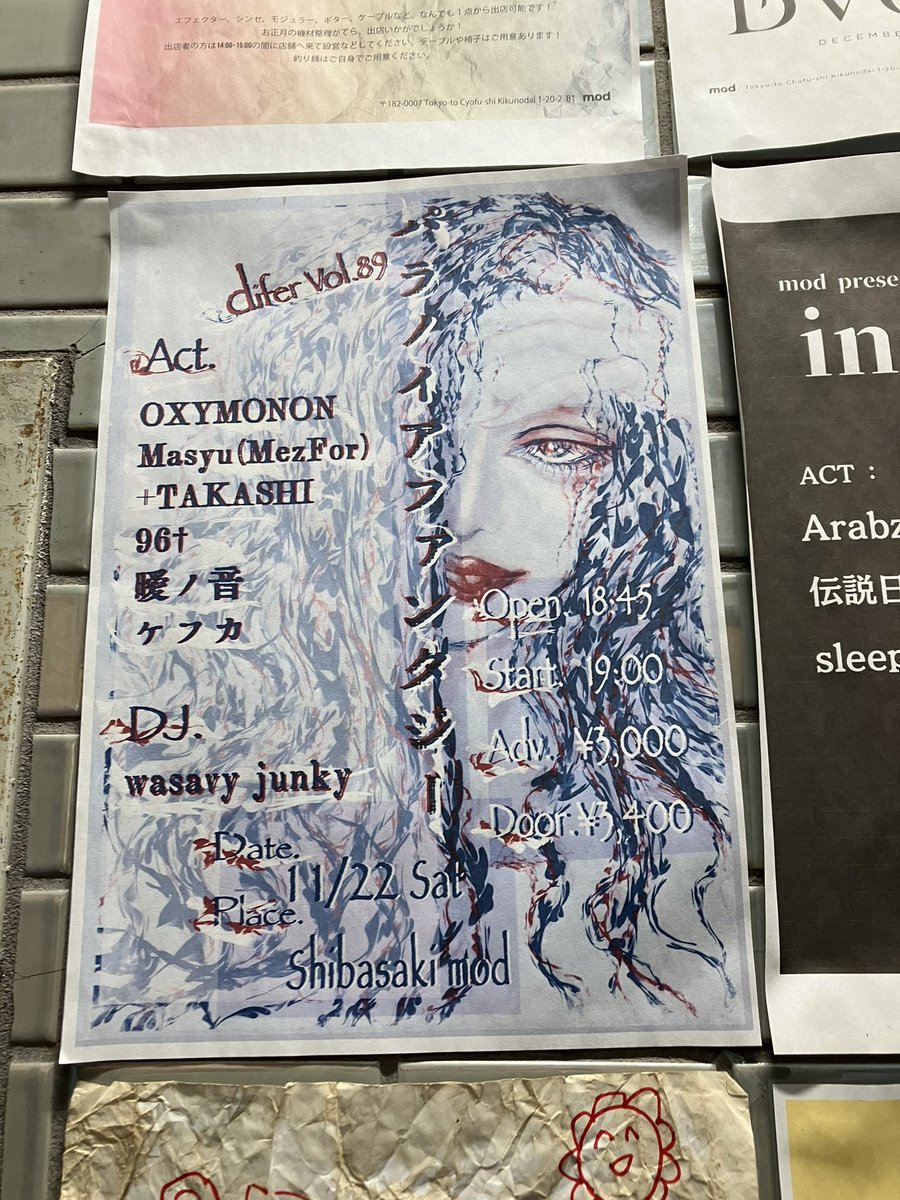 エフェクター、シンセ、モジュラー、ギター、ケーブルなど、なんでも1点から出店可能です！
お正月の機材整理がてら、出店いかがでしょうか！
出店者の方は14:00-15:00の間に店舗へ来て設営などしてください。テーブルや椅子はご用意あります！
釣り銭はご自身でご用意ください。
〒182-0007 Tokyo-to Cyofu-shi Kikunodai 1-20-2 B1 mod
DECEMBER
mod Tokyo-to Chofu-shi Kikunodai 1-20-
difer Vol.89
パラノイアファンタジー
Act.
OXYMONON
Masyu(MezFor)
+TAKASHI
96†
暖ノ音
ケフカ
DJ.
wasavy junky
Open. 18:45
Start. 19:00
Adv. ¥3,000
Door.¥3,400
Date.
11/22 Sat
Place.
Shibasaki mod
mod prese
in
ACT :
Arabz
伝説日
sleep